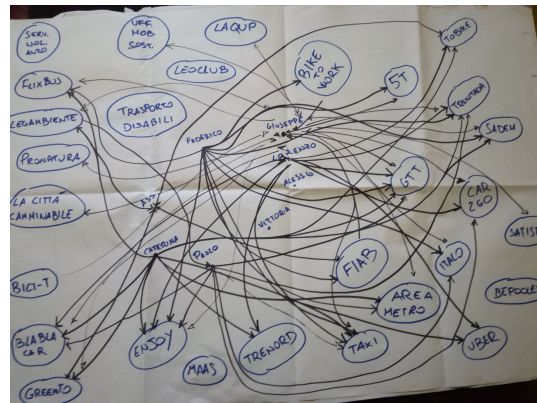 SERV.
NOL.
AUTO
UFF.
MOB
SOST.
LAQUP
TOBIKE
FLIXBUS
LEOCLUB
BIKE
TO
WORK
5T
LEGAMBIENTE
TRASPORTO
DISABILI
GIUSEPPE
TRENITALIA
SADEM
FEDERICO
PRONATURA
LORENZO
ALESSIO
GTT
CAR
2GO
LA CITTÀ
CAMMINABILE
VITTORIA
SATISP
CATERINA
PAOLO
FIAB
ITALO
BICI-T
AREA
METRO
BEPOOLER
BLABLA
CAR
ENJOY
TRENORD
TAXI
UBER
MAAS
GREENTO